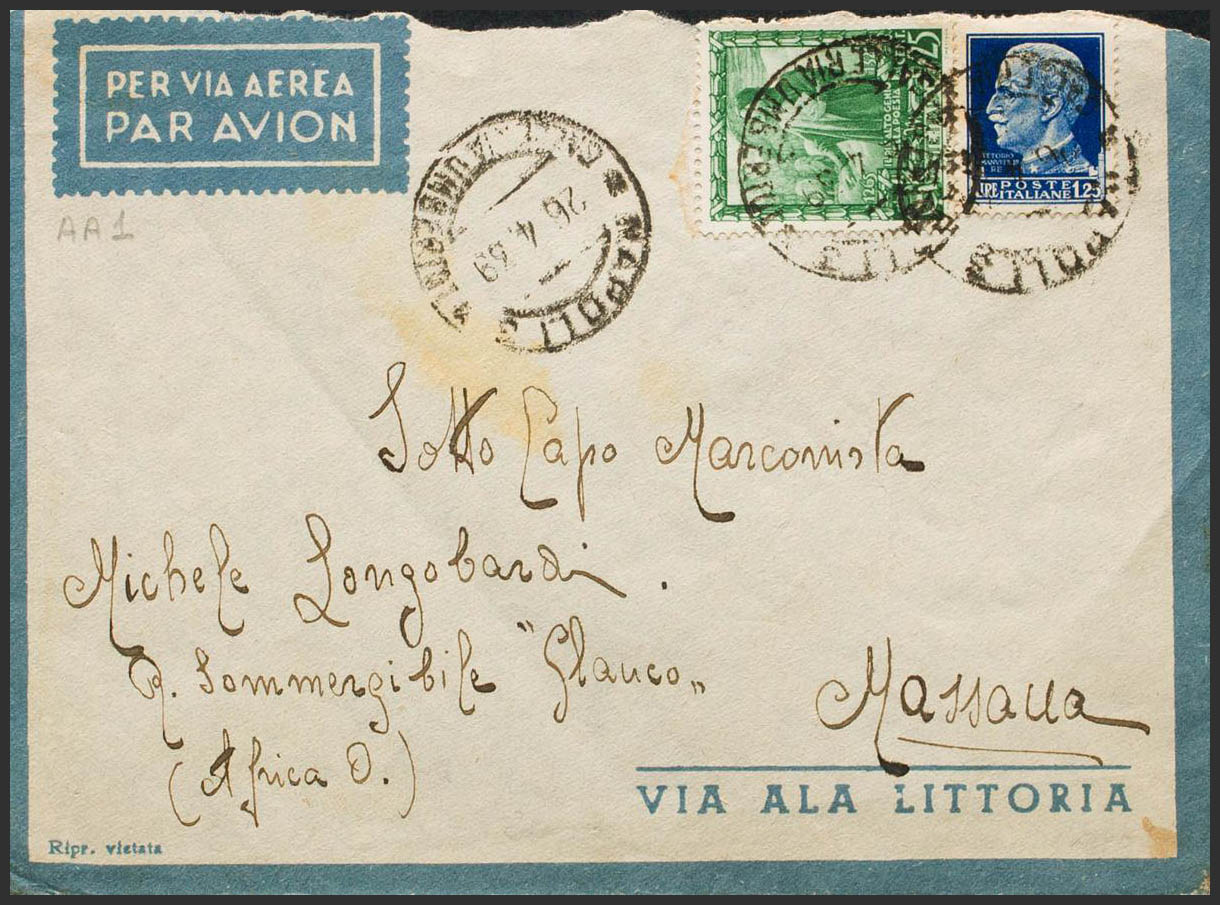 PER VIA AEREA
PAR AVION
AA1
NAPOLI
26.4.39
VITTORIO
RE
LIRE POSTE
ITALIANE 1.25
25
Sotto Capo Marconista
Michele Longobardi.
R. Sommergibile "Glauco"
Massaua
(Africa O.)
VIA ALA LITTORIA
Ripr. vietata